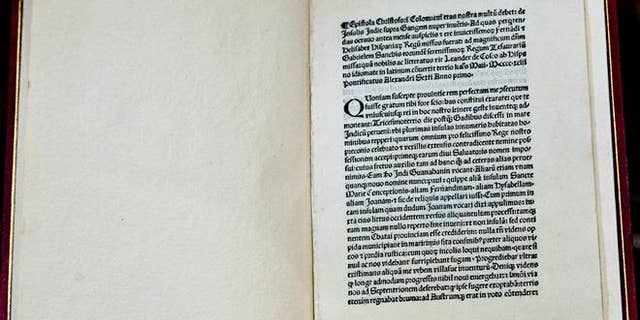 ¶ Epistola Christofori Colom: cui etas nostra multũ debet: de
Insulis Indie supra Gangem nuper inuẽtis. Ad quas perqren
das octauo antea mense auspiciis ⁊ ere inuictissimoꝝ Fernãdi ⁊
Helisabet Hispaniaꝝ Regũ missus fuerat: ad magnificum dñm
Gabrielem Sanchis eorundẽ serenissimoꝝ Regum Tesaurariũ
missa: quã nobilis ac litteratus vir Leander de Cosco ab Hispa
no idiomate in latinum cõuertit tertio kal's Maii. M.cccc.xciii
Pontificatus Alexandri Sexti Anno primo.
Quoniam suscepte prouintie rem perfectam me cõsecutum
fuisse gratum tibi fore scio: has constitui exarare: que te
vniuscuiusqȝ rei in hoc nostro itinere geste inuenteqȝ ad-
moneant: Tricesimotertio die postqȝ Gadibus discessi in mare
Indicũ perueni: vbi plurimas insulas innumeris habitatas ho-
minibus repperi: quarum omnium pro felicissimo Rege nostro
preconio celebrato ⁊ vexillis extensis contradicente nemine pos-
sessionem accepi: primeqȝ earum diui Saluatoris nomen impo-
sui: cuius fretus auxilio tam ad hanc: qȝ ad ceteras alias perue-
nimus. Eam vȩo Indi Guanahanin vocant. Aliarũ etiam vnam
quanqȝ nouo nomine nuncupaui: quippe aliã insulam Sancte
Marie Conceptionis. aliam Fernandinam. aliam Hysabellam.
aliam Joanam. ⁊ sic de reliquis appellari iussi: Cum primum
in eam insulam quam dudum Joanam vocari dixi appulimus: iu
xta eius littus occidentem versus aliquantulum processi: tamqȝ
eam magnam nullo reperto fine inueni: vt non insulã: sed conti
nentem Chatai prouinciam esse crediderim: nulla tñ videns op
pida municipiaue in maritimis sita confinibꝰ preter aliquos vi-
cos ⁊ predia rustica: cum quoꝝ incolis loqui nequibam. quare si
mul ac nos videbant surripiebant fugam. Progrediebar vltra:
existimans aliquã me vrbem villasue inuenturũ. Deniqȝ videns
qȝ longe admodum progressis nihil noui emergebat: ⁊ hmõi via
nos ad Septentrionem deferebat: qȝ ipse fugere exoptabã: terris
etenim regnabat bruma: ad Austrumqȝ erat in voto cõtendere: